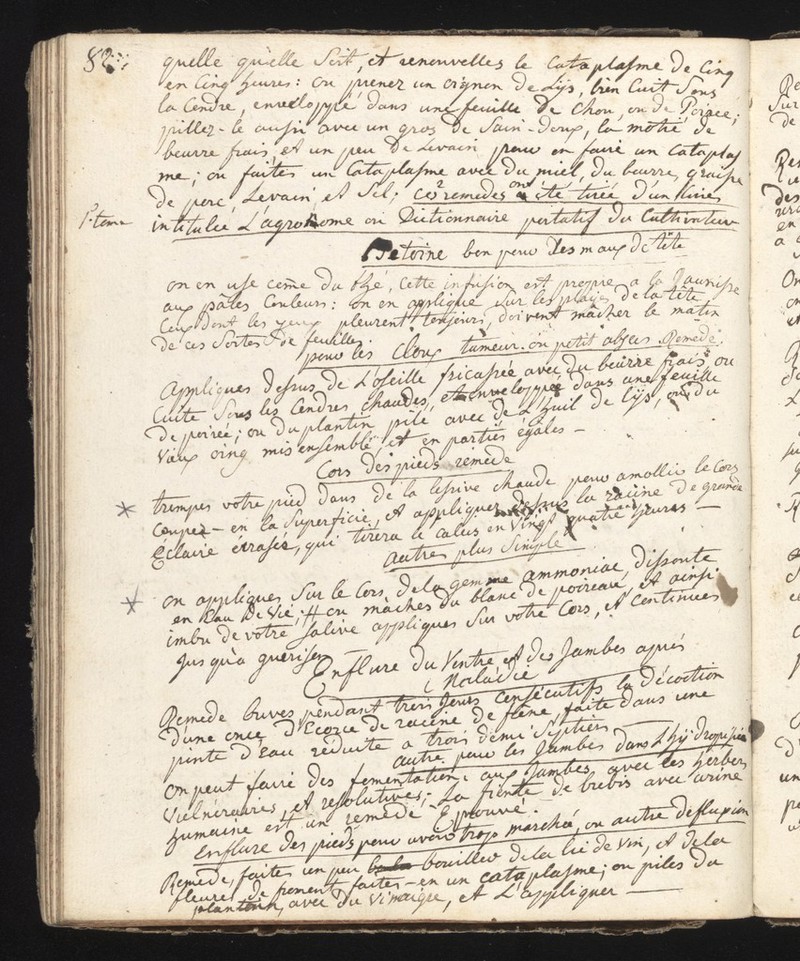 82
quelle quelle Soit, et renouvelles le Cataplasme de Cinq
en Cinq heures: ou prenez un oignon de Lys, bien Cuit Sous
la Cendre, enveloppé dans une feuille de Chou, ou de Poirée;
pillez-le aussi avec un gros de Sain-Doux, la motié de
beurre frais, et un peu de Levain pour en faire un Cataplas
me; ou faites un Cataplasme avec du miel, du beurre, graisse
de porc, Levain, et Sel; ces 2 remedes ont été tirée d'un Livre
1er tome intitulée L'agronome ou Dictionnaire portatif du Cultivateur
Betoine bon pour les maux de tête
on en use come du thé, Cette infusion est propre a la Jaunisse
aux pâles Couleurs: on en applique sur les playes de la tête
Ceux dont les yeux pleurent toujours, doivent mâcher le matin
de ces Sortes de feuilles.
pour les Cloux tumeur. ou petit absces. Remede.
Appliques dessus de L'oseille fricassée avec du beurre frais ou
Cuite Sous les Cendres chaudes, et enveloppée dans une feuille
de poirée; ou du plantin pilé avec de L'huil de Lys, ou du
vieux oing mis ensemble et en parties égales –
Cors des pieds remede
* trempes votre pied dans de la lessive chaude pour amollir le Cors
Coupez-en la Superficie, et appliquez dessus la racine de grande
Eclaire écrasée, qui tirera le Calus en vingt quatre heures —
autre plus Simple
* on appliques Sur le Cors, de la gemme ammoniac, dissoute
en Eau De Vie; # ou mâches du blanc de poireau, et ainsi
imbu de votre salive appliques Sur votre Cors, et Continues
jusqu'à guerison —
Enflure du Ventre et des Jambes après
Maladie
Remede buves pendant trois Jours Consécutifs la décoction
d'une once d'Ecorce de racine de frêne faite dans une
pinte d'Eau réduite a trois demi Septiers —
autre pour les Jambes dans L'hydropisie
on peut faire des fomentations aux Jambes avec les herbes
Vulnéraires, et resolutives; La fiente de brebis avec urine
humaine est un remede Eprouvé.
Enflure des pieds pour avoir trop marché, ou autre defluxion
Remede, faites un peu bouillir de la lie de vin, et de la
fleure de froment faites-en un Cataplasme; ou piles du
plantin, avec du Vinaigre, et L'appliquer —